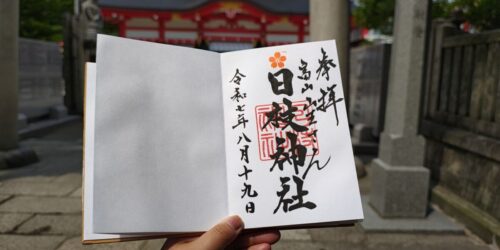 奉拝
富山山王さん
日枝神社
令和七年八月十九日